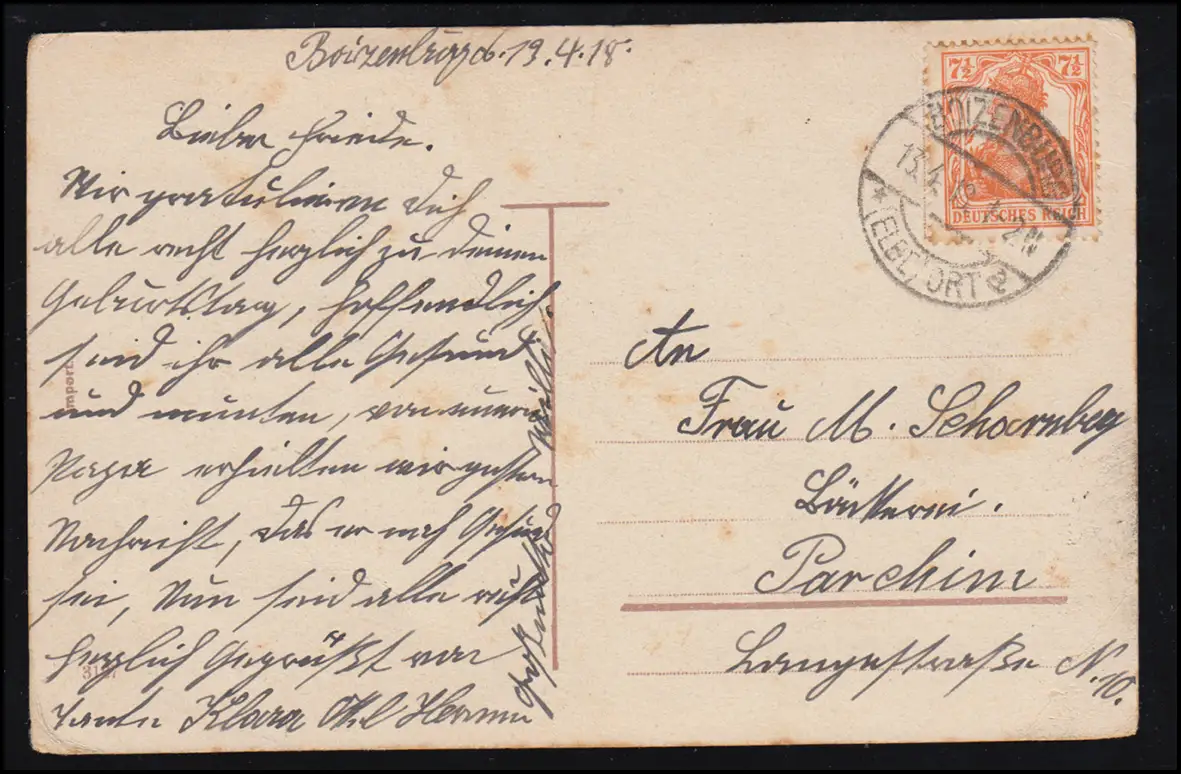 Boizenburg d. 13.4.18.
Lieber Friede.
Wir gratulieren Dich
alle recht herzlich zu deinen
Geburtstag, hoffendlich
seid ihr alle Gesund
und munter, von unern
erhielten wir gestern
Nachricht, das er noch Gesund
sei, Nun seid alle recht
herzlich Gegrüßt von
Tante Klara Herm
7½ 7½
DEUTSCHES REICH
BOIZENBURG
13.4.18 1-2N
* (ELBE) ORT
An
Frau M. Scharnberg
Bäckerei.
Parchim
Langestraße N. 10.
Import